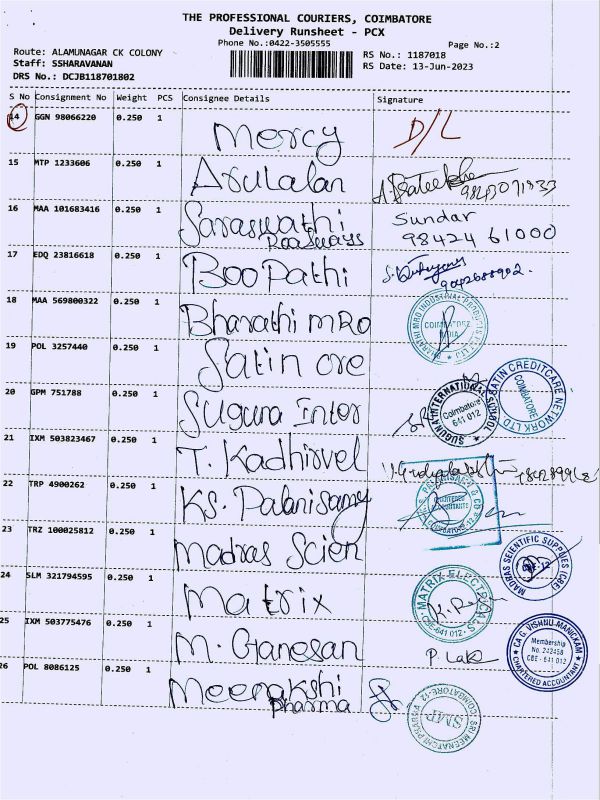 THE PROFESSIONAL COURIERS, COIMBATORE
Delivery Runsheet - PCX
Phone No.:0422-3505555
Page No.:2
Route: ALAMUNAGAR CK COLONY
Staff: SSHARAVANAN
DRS No.: DCJB118701802
RS No.: 1187018
RS Date: 13-Jun-2023
S No Consignment No Weight PCS Consignee Details Signature
14 GGN 98066220 0.250 1 Mercy D/L
15 MTP 1233606 0.250 1 Arulalan
16 MAA 101683416 0.250 1 Saraswathi Sundar
98424 61000
17 EDQ 23816618 0.250 1 Boo Pathi
18 MAA 569800322 0.250 1 Bharathi MRO BHARATHI MRO INDUSTRIAL PRODUCTS COIMBATORE INDIA
19 POL 3257440 0.250 1 Satin cre SATIN CREDITCARE NETWORK LTD COIMBATORE
20 GPM 751788 0.250 1 Suguna Inter SUGUNA INTERNATIONAL SCHOOL Coimbatore 641 012
21 IXM 503823467 0.250 1 T. Kadhirvel
22 TRP 4900262 0.250 1 KS. Palanisamy CHARTERED ACCOUNTANTS
23 TRZ 100025812 0.250 1 Madras Scien MADRAS SCIENTIFIC SUPPLIES (CBE) CBE-12
24 SLM 321794595 0.250 1 Matrix MATRIX ELECTRICALS CBE-641 012
25 IXM 503775476 0.250 1 M. Ganesan P. Lake CA G. VISHNU MANICKAM CHARTERED ACCOUNTANT Membership No. 242458 CBE - 641 012
26 POL 8086125 0.250 1 Meenakshi
Pharma SMP COIMBATORE-12